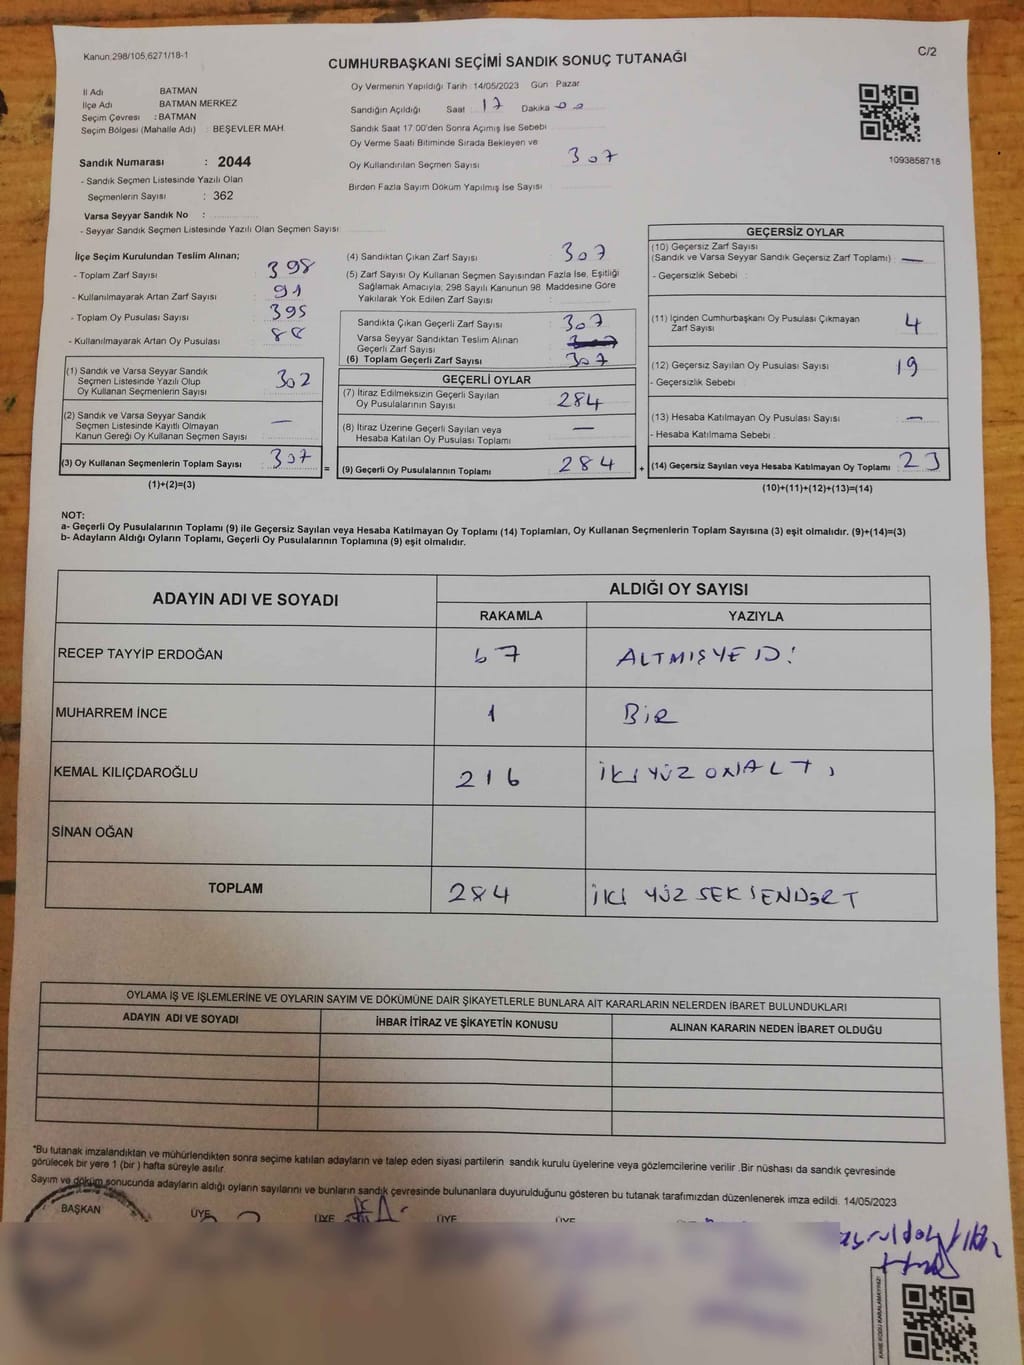 Kanun:298/105,6271/18-1
C/2
CUMHURBAŞKANI SEÇİMİ SANDIK SONUÇ TUTANAĞI
İl Adı BATMAN
İlçe Adı BATMAN MERKEZ
Seçim Çevresi : BATMAN
Seçim Bölgesi (Mahalle Adı) : BEŞEVLER MAH.
Sandık Numarası : 2044
- Sandık Seçmen Listesinde Yazılı Olan
Seçmenlerin Sayısı : 362
Varsa Seyyar Sandık No :
- Seyyar Sandık Seçmen Listesinde Yazılı Olan Seçmen Sayısı
Oy Vermenin Yapıldığı Tarih 14/05/2023 Gün Pazar
Sandığın Açıldığı Saat 17 Dakika 00
Sandık Saat 17.00'den Sonra Açımış İse Sebebi
Oy Verme Saati Bitiminde Sırada Bekleyen ve
Oy Kullandırılan Seçmen Sayısı 307
Birden Fazla Sayım Döküm Yapılmış İse Sayısı
1093858718
İlçe Seçim Kurulundan Teslim Alınan;
- Toplam Zarf Sayısı 398
- Kullanılmayarak Artan Zarf Sayısı 91
- Toplam Oy Pusulası Sayısı 395
- Kullanılmayarak Artan Oy Pusulası 88
(1) Sandık ve Varsa Seyyar Sandık
Seçmen Listesinde Yazılı Olup
Oy Kullanan Seçmenlerin Sayısı 302
(2) Sandık ve Varsa Seyyar Sandık
Seçmen Listesinde Kayıtlı Olmayan
Kanun Gereği Oy Kullanan Seçmen Sayısı —
(3) Oy Kullanan Seçmenlerin Toplam Sayısı 307
(1)+(2)=(3)
(4) Sandıktan Çıkan Zarf Sayısı 307
(5) Zarf Sayısı Oy Kullanan Seçmen Sayısından Fazla İse, Eşitliği
Sağlamak Amacıyla, 298 Sayılı Kanunun 98. Maddesine Göre
Yakılarak Yok Edilen Zarf Sayısı
Sandıkta Çıkan Geçerli Zarf Sayısı 307
Varsa Seyyar Sandıktan Teslim Alınan
Geçerli Zarf Sayısı
(6) Toplam Geçerli Zarf Sayısı 307
GEÇERLİ OYLAR
(7) İtiraz Edilmeksizin Geçerli Sayılan
Oy Pusulalarının Sayısı 284
(8) İtiraz Üzerine Geçerli Sayılan veya
Hesaba Katılan Oy Pusulası Toplamı —
= (9) Geçerli Oy Pusulalarının Toplamı 284 +
GEÇERSİZ OYLAR
(10) Geçersiz Zarf Sayısı
(Sandık ve Varsa Seyyar Sandık Geçersiz Zarf Toplamı) : —
- Geçersizlik Sebebi :
(11) İçinden Cumhurbaşkanı Oy Pusulası Çıkmayan
Zarf Sayısı 4
(12) Geçersiz Sayılan Oy Pusulası Sayısı 19
- Geçersizlik Sebebi
(13) Hesaba Katılmayan Oy Pusulası Sayısı —
- Hesaba Katılmama Sebebi
(14) Geçersiz Sayılan veya Hesaba Katılmayan Oy Toplamı 23
(10)+(11)+(12)+(13)=(14)
NOT:
a- Geçerli Oy Pusulalarının Toplamı (9) ile Geçersiz Sayılan veya Hesaba Katılmayan Oy Toplamı (14) Toplamları, Oy Kullanan Seçmenlerin Toplam Sayısına (3) eşit olmalıdır. (9)+(14)=(3)
b- Adayların Aldığı Oyların Toplamı, Geçerli Oy Pusulalarının Toplamına (9) eşit olmalıdır.
ADAYIN ADI VE SOYADI ALDIĞI OY SAYISI
RAKAMLA YAZIYLA
RECEP TAYYİP ERDOĞAN 67 ALTMIŞYEDİ
MUHARREM İNCE 1 BİR
KEMAL KILIÇDAROĞLU 216 İKİ YÜZ ONALTI
SİNAN OĞAN
TOPLAM 284 İKİ YÜZ SEKSENDÖRT
OYLAMA İŞ VE İŞLEMLERİNE VE OYLARIN SAYIM VE DÖKÜMÜNE DAİR ŞİKAYETLERLE BUNLARA AİT KARARLARIN NELERDEN İBARET BULUNDUKLARI
ADAYIN ADI VE SOYADI İHBAR İTİRAZ VE ŞİKAYETİN KONUSU ALINAN KARARIN NEDEN İBARET OLDUĞU
*Bu tutanak imzalandıktan ve mühürlendikten sonra seçime katılan adayların ve talep eden siyasi partilerin sandık kurulu üyelerine veya gözlemcilerine verilir .Bir nüshası da sandık çevresinde
görülecek bir yere 1 (bir ) hafta süreyle asılır.
Sayım ve döküm sonucunda adayların aldığı oyların sayılarını ve bunların sandık çevresinde bulunanlara duyurulduğunu gösteren bu tutanak tarafımızdan düzenlenerek imza edildi. 14/05/2023
BAŞKAN ÜYE ÜYE ÜYE ÜYE